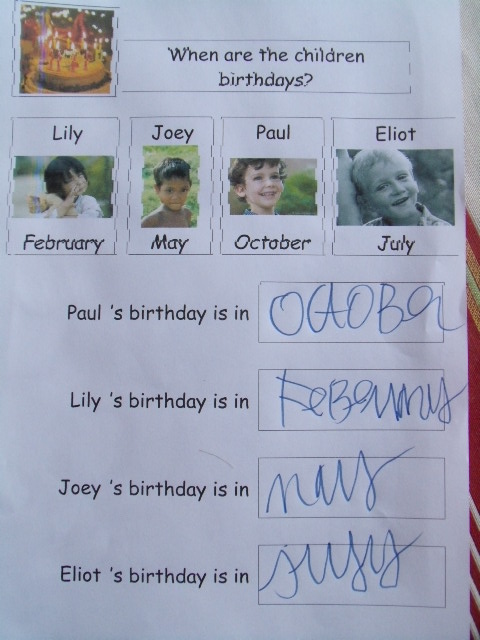 When are the children
birthdays?
Lily Joey Paul Eliot
February May October July
Paul 's birthday is in OctoBer
Lily 's birthday is in
Joey 's birthday is in may
Eliot 's birthday is in